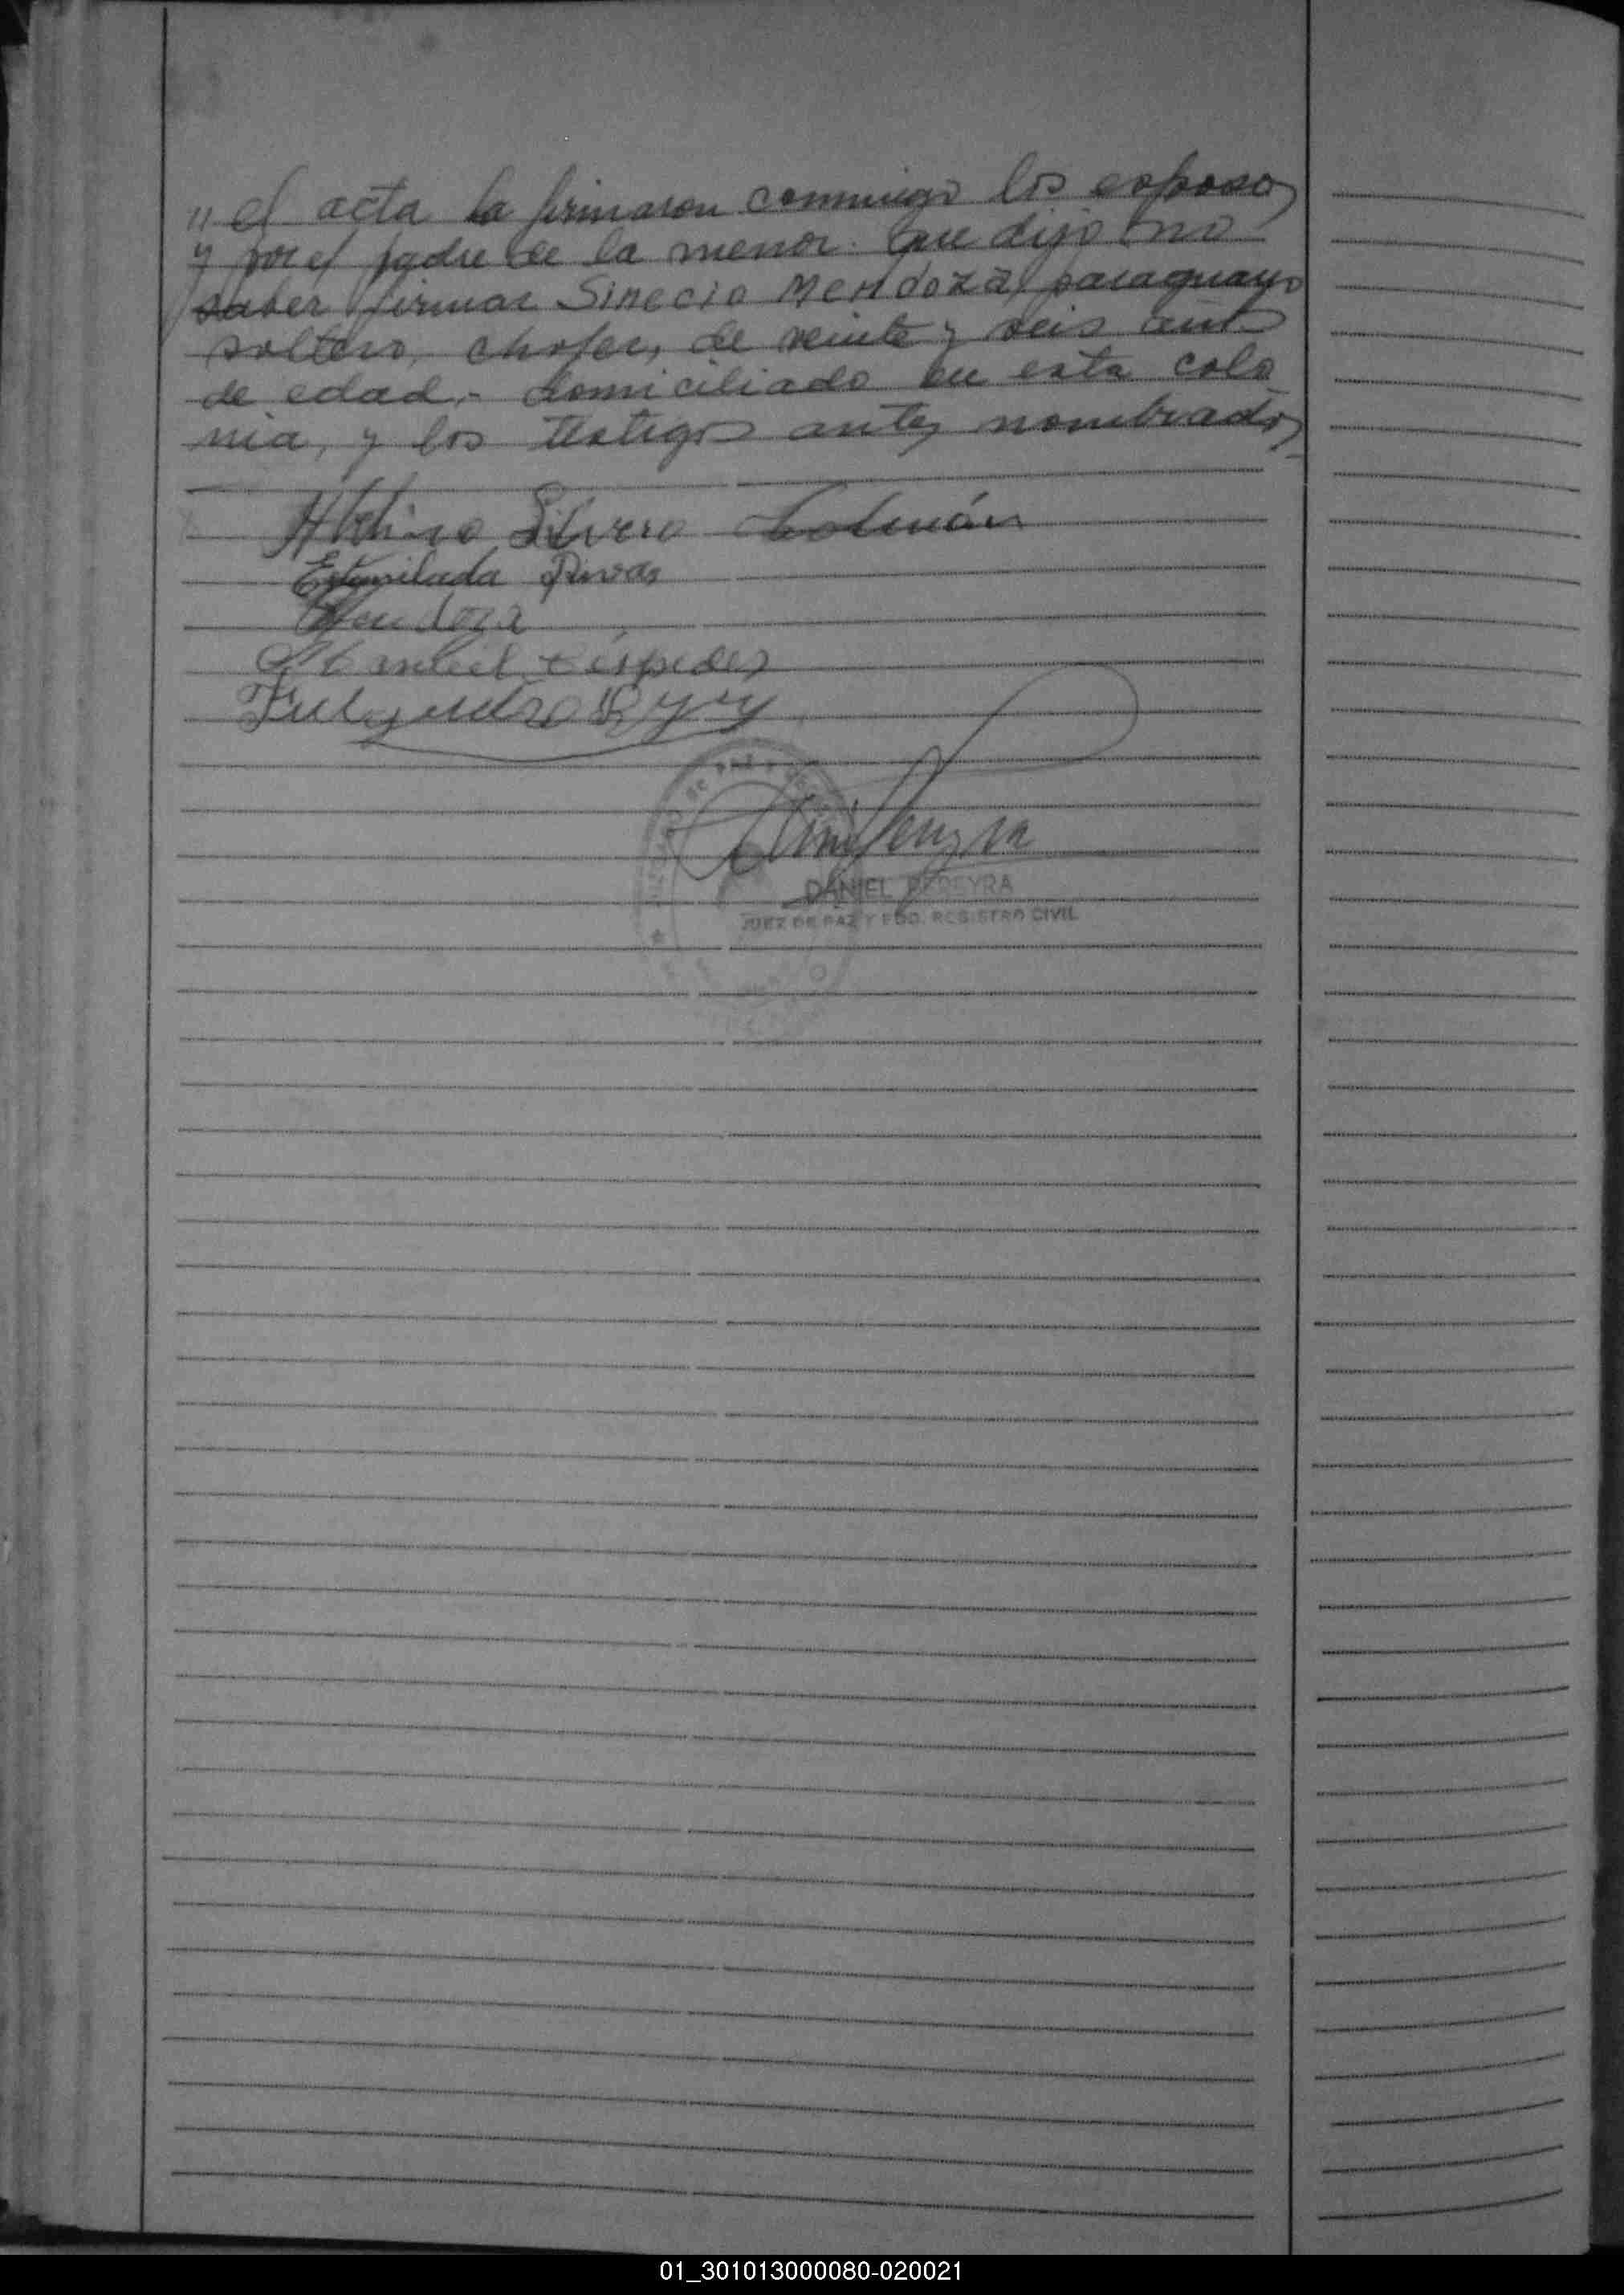 " el acta la firmaron conmigo los esposos
y por el padre de la menor. que dijo no
saber firmar Sinecio Mendoza, paraguayo
soltero, chofer, de veinte y seis años
de edad, - domiciliado en esta colo
nia, y los testigos antes nombrados
Silvero Colmán
Estanilada Rivas
Mendoza
Céspedes
DANIEL PEREYRA
JUEZ DE PAZ Y EDO. REGISTRO CIVIL
01_301013000080-020021